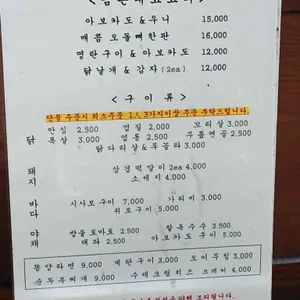 아보카도&우니 15,000
매콤 오돌뼈한판 16,000
명란구이&아보카도 12,000
닭날개&감자(2ea) 12,000
<구이류>
단품 주문시 최소주문 1人3가지이상 주문 부탁드립니다.
닭
안심 2,500 껍질 2,000 꼬리살 3,000
목살 3,000 염통 2,500 무릎연골 2,500
닭다리살&루꼴라 3,000
돼지
삼겹떡말이 2ea 4,000
소세지 4,000
바다
시사모구이 7,000 가리비 3,000
쥐포구이 5,000
야채
방울토마토 2,500 촬옥수수 3,500
대파 2,500 아보카도구이 5,000
통양라면 9,000 계란구이 3,000 오이무침 3,000
순두부찌개 9,000 수제크림치즈 크레커 4,000